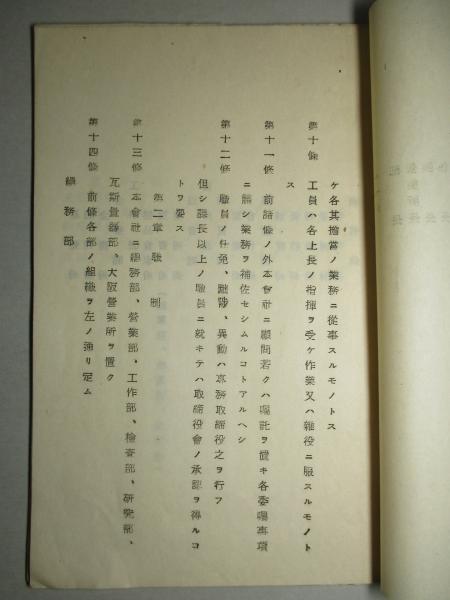 ケ各其擔當ノ業務ニ從事スルモノトス
第十條 工員ハ各上長ノ指揮ヲ受ケ作業又ハ雜役ニ服スルモノト
ス
第十一條 前諸條ノ外本會社ニ顧問若クハ囑託ヲ置キ各委囑事項
ニ關シ業務ヲ補佐セシムルコトアルヘシ
第十二條 職員ノ任免、黜陟、異動ハ專務取締役之ヲ行フ
但シ課長以上ノ職員ニ就キテハ取締役會ノ承認ヲ得ルコ
トヲ要ス
第二章 職制
第十三條 本會社ニ總務部、營業部、工作部、檢査部、研究部、
瓦斯量器部、大阪營業所ヲ置ク
第十四條 前條各部ノ組織ヲ左ノ通リ定ム
總務部